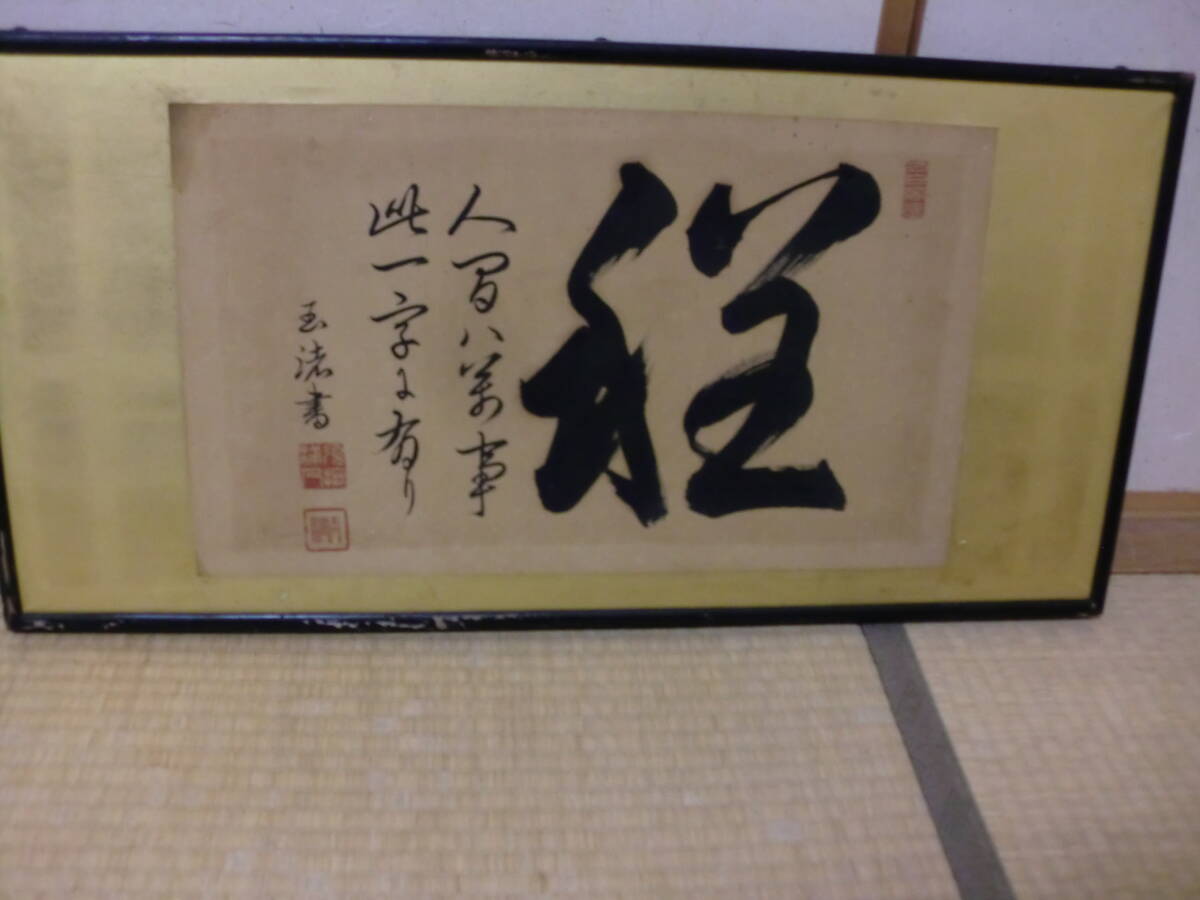 程
人間ハ萬事
此一字に有り
玉渚書